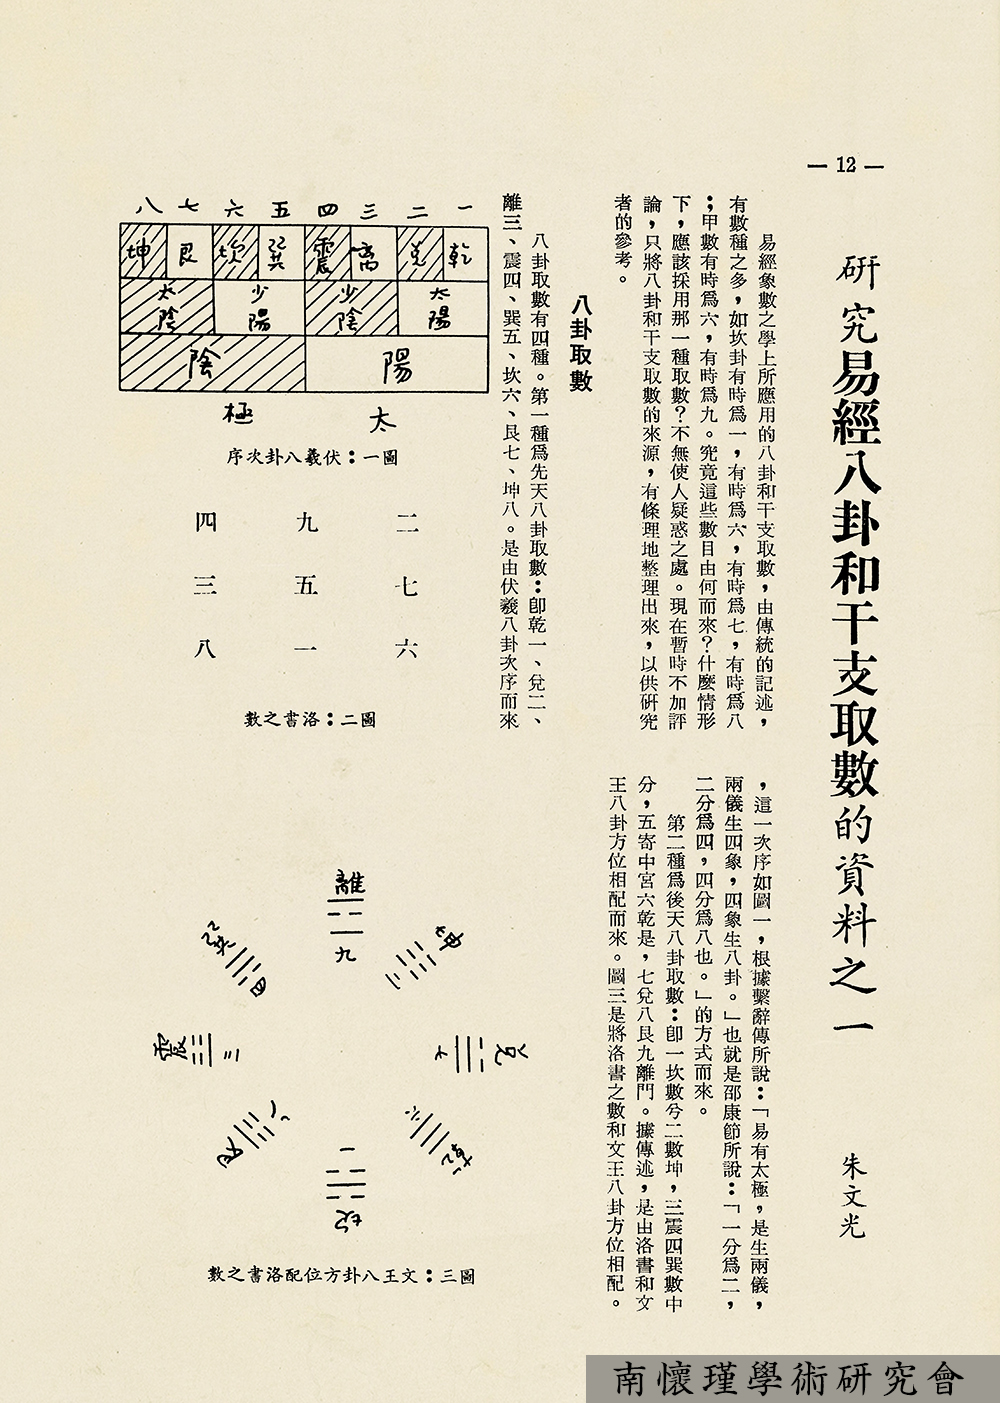 — 12 —
研究易經八卦和干支取數的資料之一
朱文光
易經象數之學上所應用的八卦和干支取數，由傳統的記述，
有數種之多，如坎卦有時爲一，有時爲六，有時爲七，有時爲八
；甲數有時爲六，有時爲九。究竟這些數目由何而來？什麼情形
下，應該採用那一種取數？不無使人疑惑之處。現在暫時不加評
論，只將八卦和干支取數的來源，有條理地整理出來，以供研究
者的參考。
八卦取數
八卦取數有四種。第一種爲先天八卦取數：卽乾一、兌二、
離三、震四、巽五、坎六、艮七、坤八。是由伏羲八卦次序而來
，這一次序如圖一，根據繫辭傳所說：「易有太極，是生兩儀，
兩儀生四象，四象生八卦。」也就是邵康節所說：「一分爲二，
二分爲四，四分爲八也。」的方式而來。
第二種爲後天八卦取數：卽一坎數兮二數坤，三震四巽數中
分，五寄中宮六乾是，七兌八艮九離門。據傳述，是由洛書和文
王八卦方位相配而來。圖三是將洛書之數和文王八卦方位相配。
一 二 三 四 五 六 七 八
乾 兌 離 震 巽 坎 艮 坤
太陽 少陰 少陽 太陰
陽 陰
太 極
圖一：伏羲八卦次序
二 九 四
七 五 三
六 一 八
圖二：洛書之數
離 九
坤 二
兌 七
乾 六
坎 一
艮 八
震 三
巽 四
圖三：文王八卦方位配洛書之數
南懷瑾學術研究會